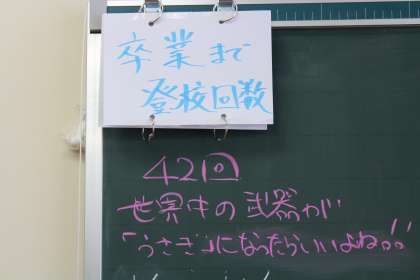 卒業まで
登校回数
42回
世界中の武器が
「うさぎ」になったらいいよね!!